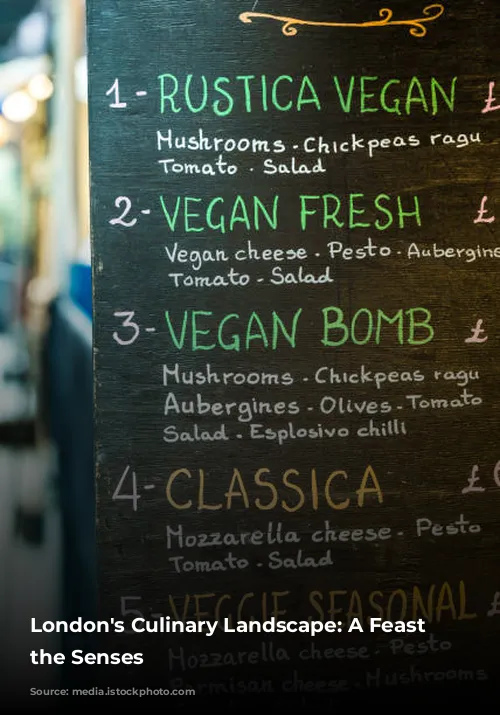 1- RUSTICA VEGAN £
Mushrooms . Chickpeas ragu
Tomato . Salad
2- VEGAN FRESH £
Vegan cheese . Pesto . Aubergine
Tomato - Salad
3- VEGAN BOMB £
Mushrooms . Chickpeas ragu
Aubergines . Olives - Tomato
Salad . Esplosivo chilli
4- CLASSICA £
Mozzarella cheese . Pesto
Tomato . Salad
5- VEGGIE SEASONAL £
London's Culinary Landscape: A Feast
the Senses
Mozzarella cheese . Pesto
Parmisan cheese . Mushrooms
Source: media.istockphoto.com